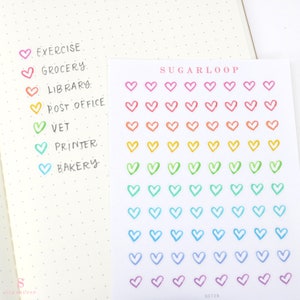 EXERCISE
GROCERY
LIBRARY
POST OFFICE
VET
PRINTER
BAKERY
SUGARLOOP